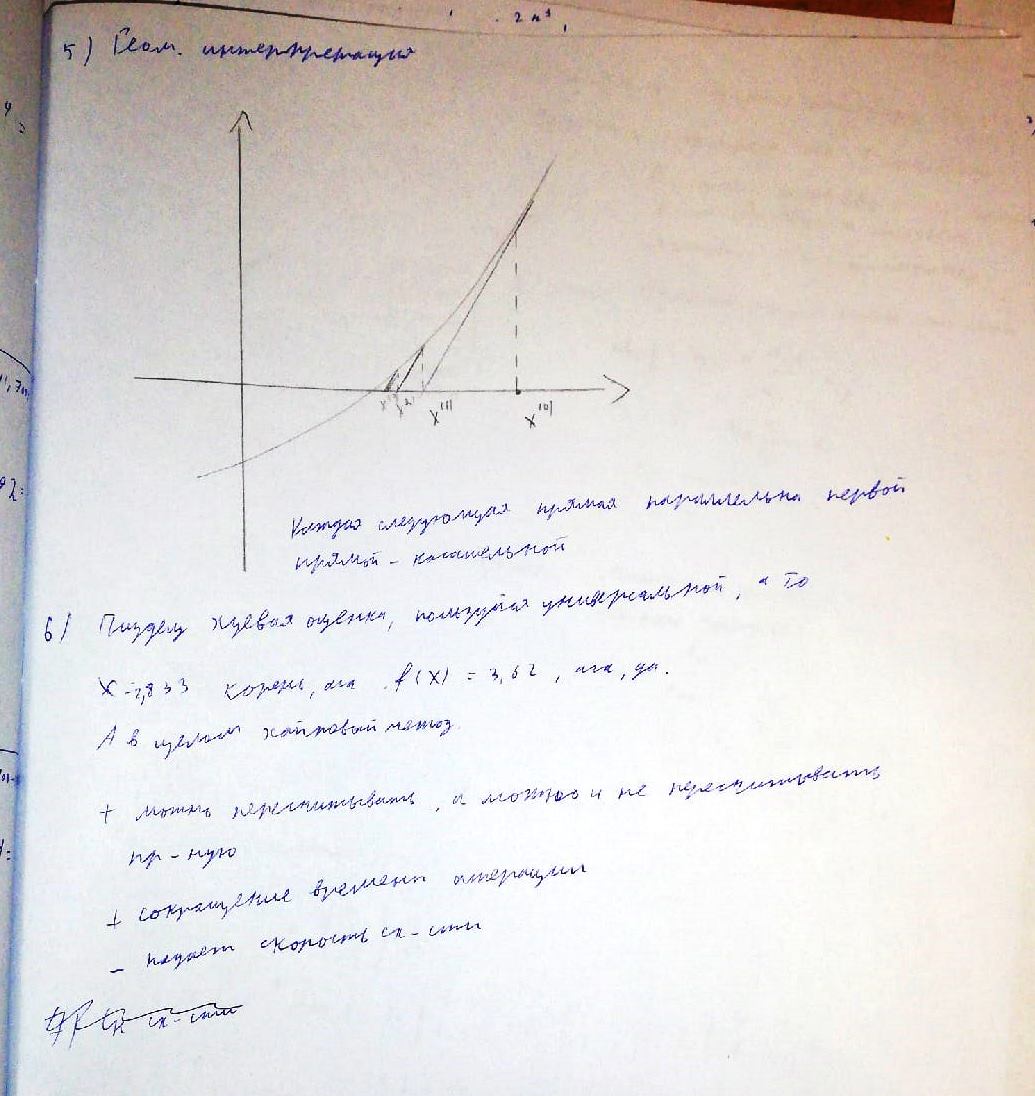 2 x³
5) Геом. интерпретация
x⁽²⁾ x⁽¹⁾ x⁽⁰⁾
Каждая следующая прямая параллельна первой
прямой - касательной
6) Пиздец хуевая оценка, пользуйся универсальной, а то
X = 2,833 корень, ага f(X) = 3,62, ага, да.
А в целом хайповый метод.
+ можно пересчитывать, а можно и не пересчитывать
пр-ную
+ сокращение времени итерации
- падает скорость сх-сти
сх-сти